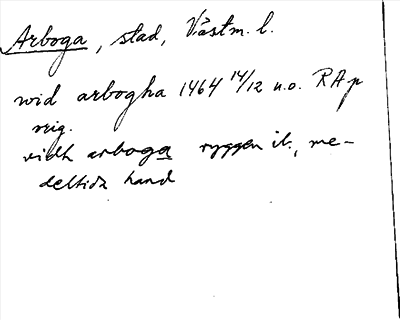 Arboga, stad, Västm. l.
wid arbogha 1464 14/12 u.o. RAp
vidh arboga ryggen ib., me-
deltida hand